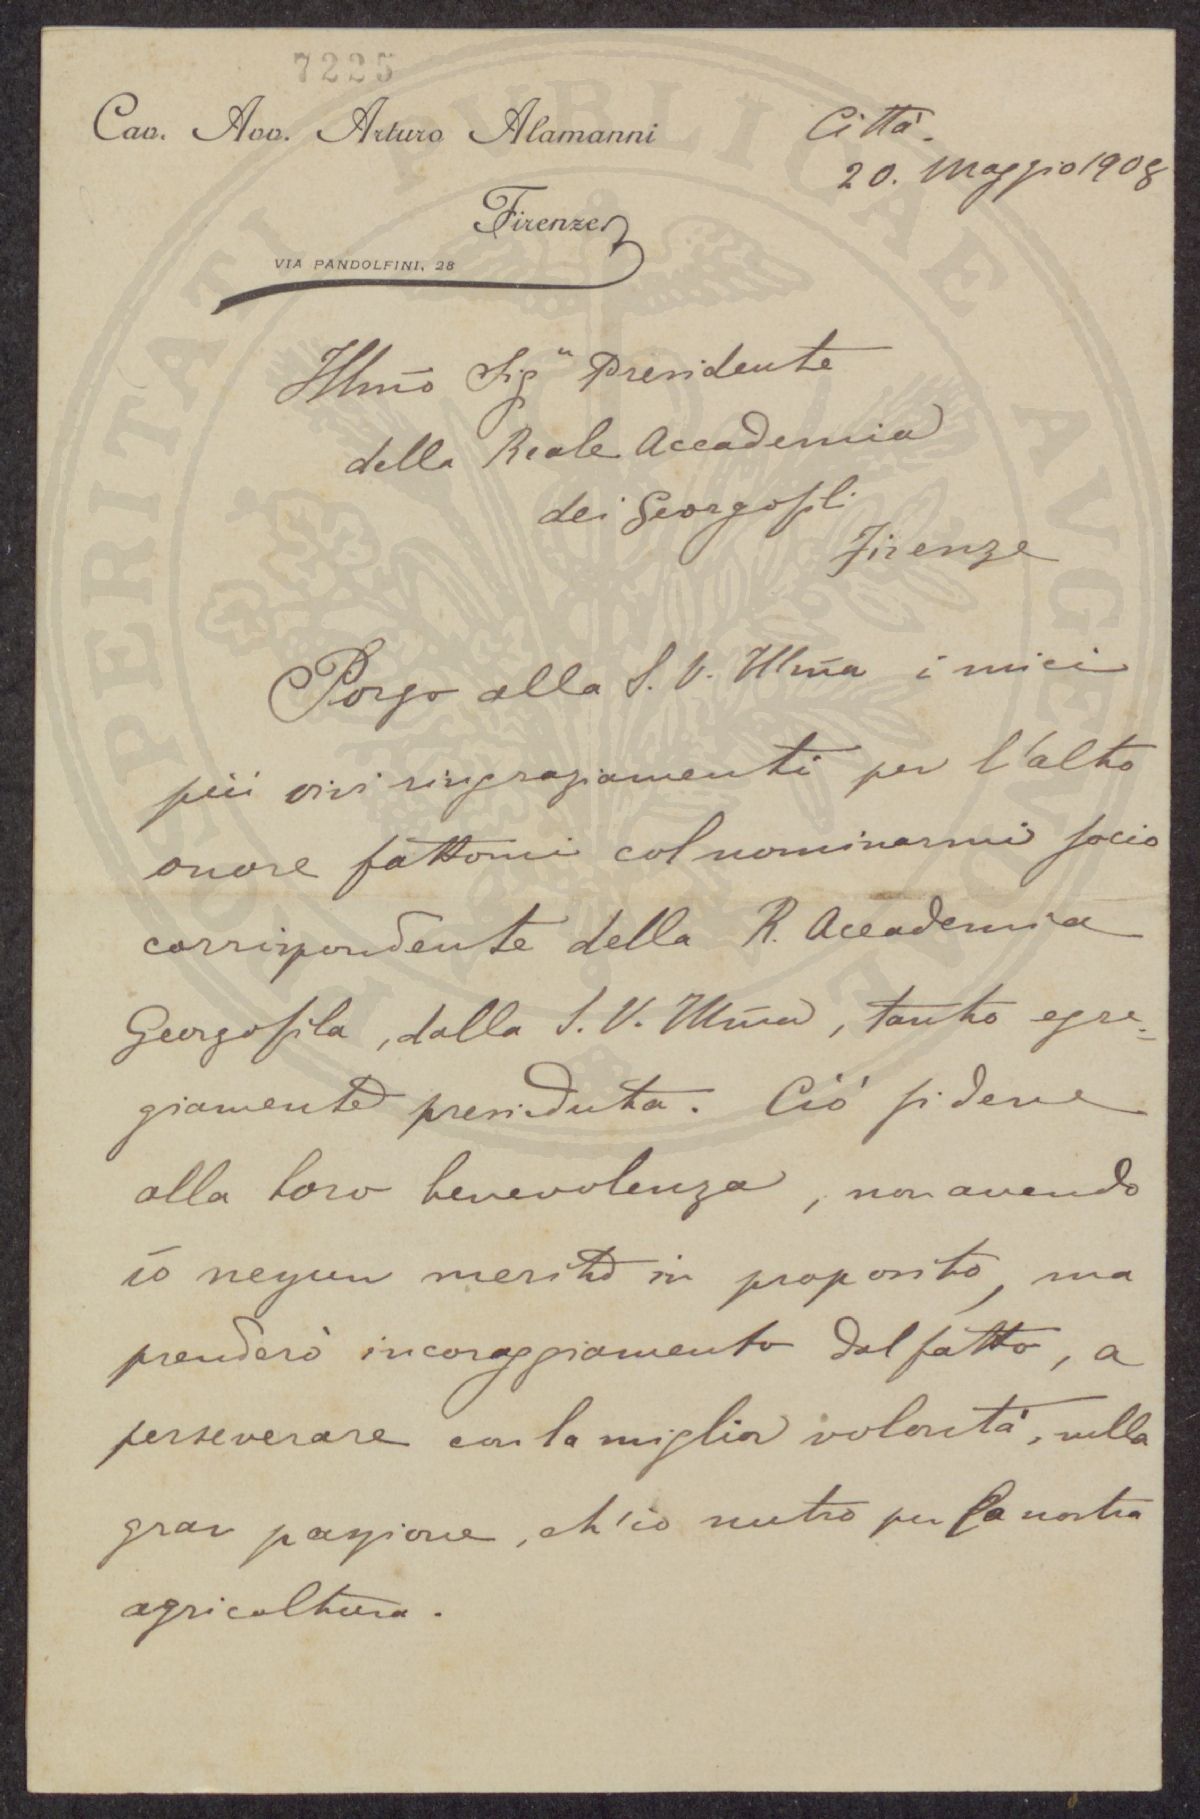 7225
Cav. Avv. Arturo Alamanni
Città.
20. Maggio 1908
Firenze
VIA PANDOLFINI, 28
Illmo Sigr Presidente
della Reale Accademia
dei Georgofili
Firenze
Porgo alla S. V. Illma i miei
più vivi ringraziamenti per l'alto
onore fattomi col nominarmi socio
corrispondente della R. Accademia
Georgofila, dalla S. V. Illma, tanto egre=
giamente presieduta. Ciò si deve
alla loro benevolenza, non avendo
io nessun merito in proposito, ma
prenderò incoraggiamento dal fatto, a
perseverare con la miglior volontà, nella
gran passione, ch'io nutro per la nostra
agricoltura.
PROSPERITATI PUBLICAE AVGENDAE